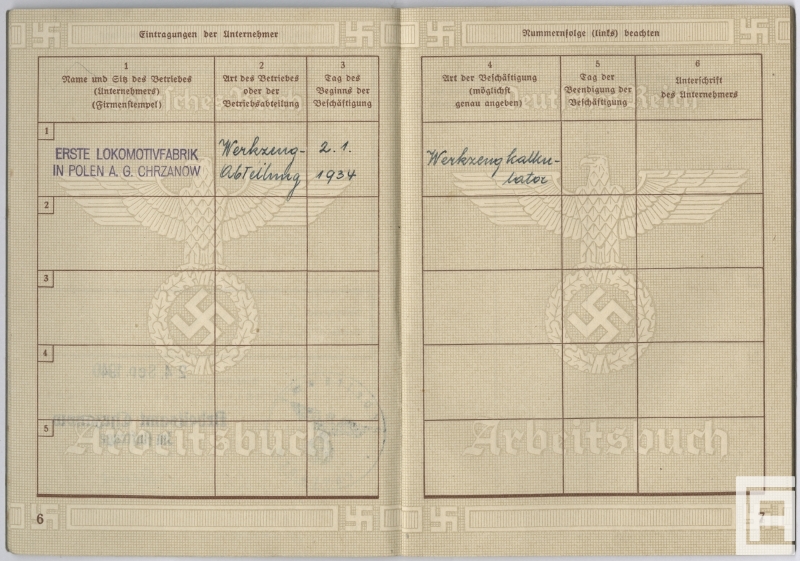 Eintragungen der Unternehmer
1
Name und Sitz des Betriebes
(Unternehmers)
(Firmenstempel)
2
Art des Betriebes
oder der
Betriebsabteilung
3
Tag des
Beginns der
Beschäftigung
1
ERSTE LOKOMOTIVFABRIK
IN POLEN A. G. CHRZANOW
Werkzeug-
Abteilung
2. 1.
1934
2
3
4
24. Sep. 1940
5
Arbeitsbuch
6
Nummernfolge (links) beachten
4
Art der Beschäftigung
(möglichst
genau angeben)
5
Tag der
Beendigung der
Beschäftigung
6
Unterschrift
des Unternehmers
Deutsches Reich
Werkzeugkalku-
lator
Arbeitsbuch
7